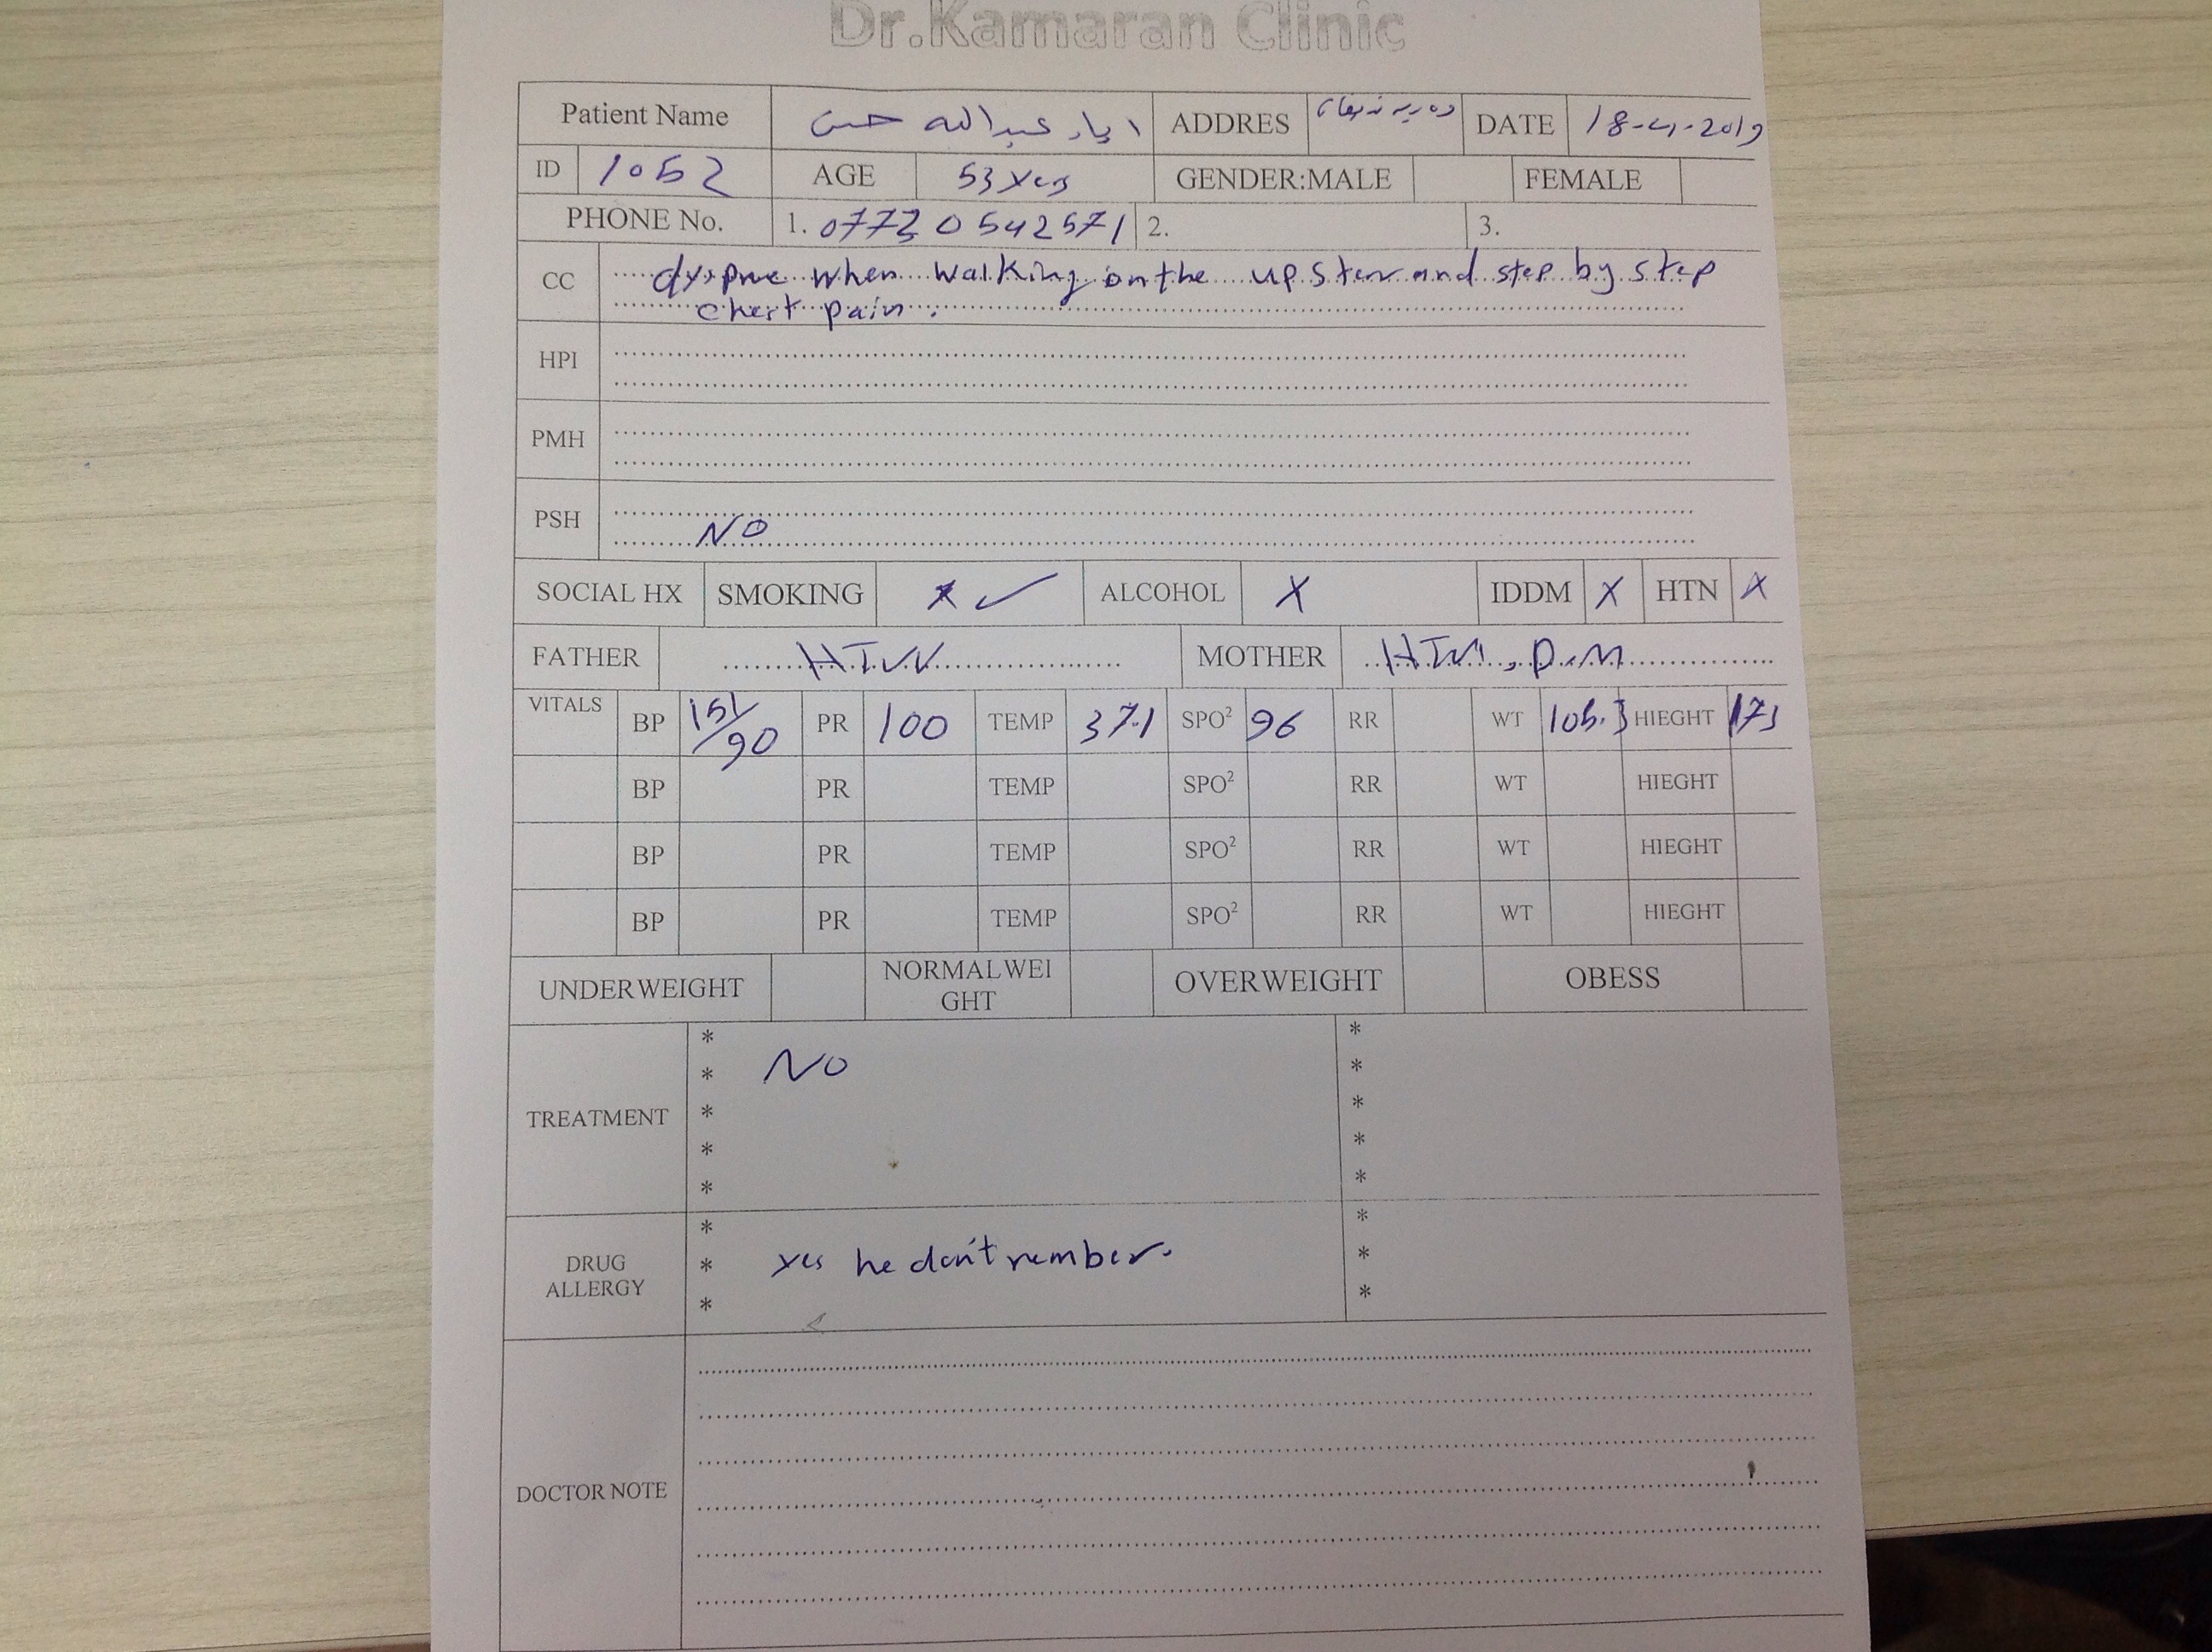 Dr.Kamaran Clinic
Patient Name اياد عبدالله حسن ADDRES DATE 18-4-2019
ID 1052 AGE 53 yes GENDER:MALE FEMALE
PHONE No. 1. 07730542571 2. 3.
CC dyspne when walking on the up ster and step by step
chest pain.
HPI
PMH
PSH
NO
SOCIAL HX SMOKING x ✓ ALCOHOL X IDDM X HTN X
FATHER HTN MOTHER HTN, D.M
VITALS BP 151/90 PR 100 TEMP 37.1 SPO² 96 RR WT 105.3 HIEGHT 173
BP PR TEMP SPO² RR WT HIEGHT
BP PR TEMP SPO² RR WT HIEGHT
BP PR TEMP SPO² RR WT HIEGHT
UNDERWEIGHT NORMALWEI
GHT OVERWEIGHT OBESS
* *
* NO *
TREATMENT * *
* *
* *
* *
DRUG
ALLERGY * yes he don't rember. *
* *
DOCTOR NOTE